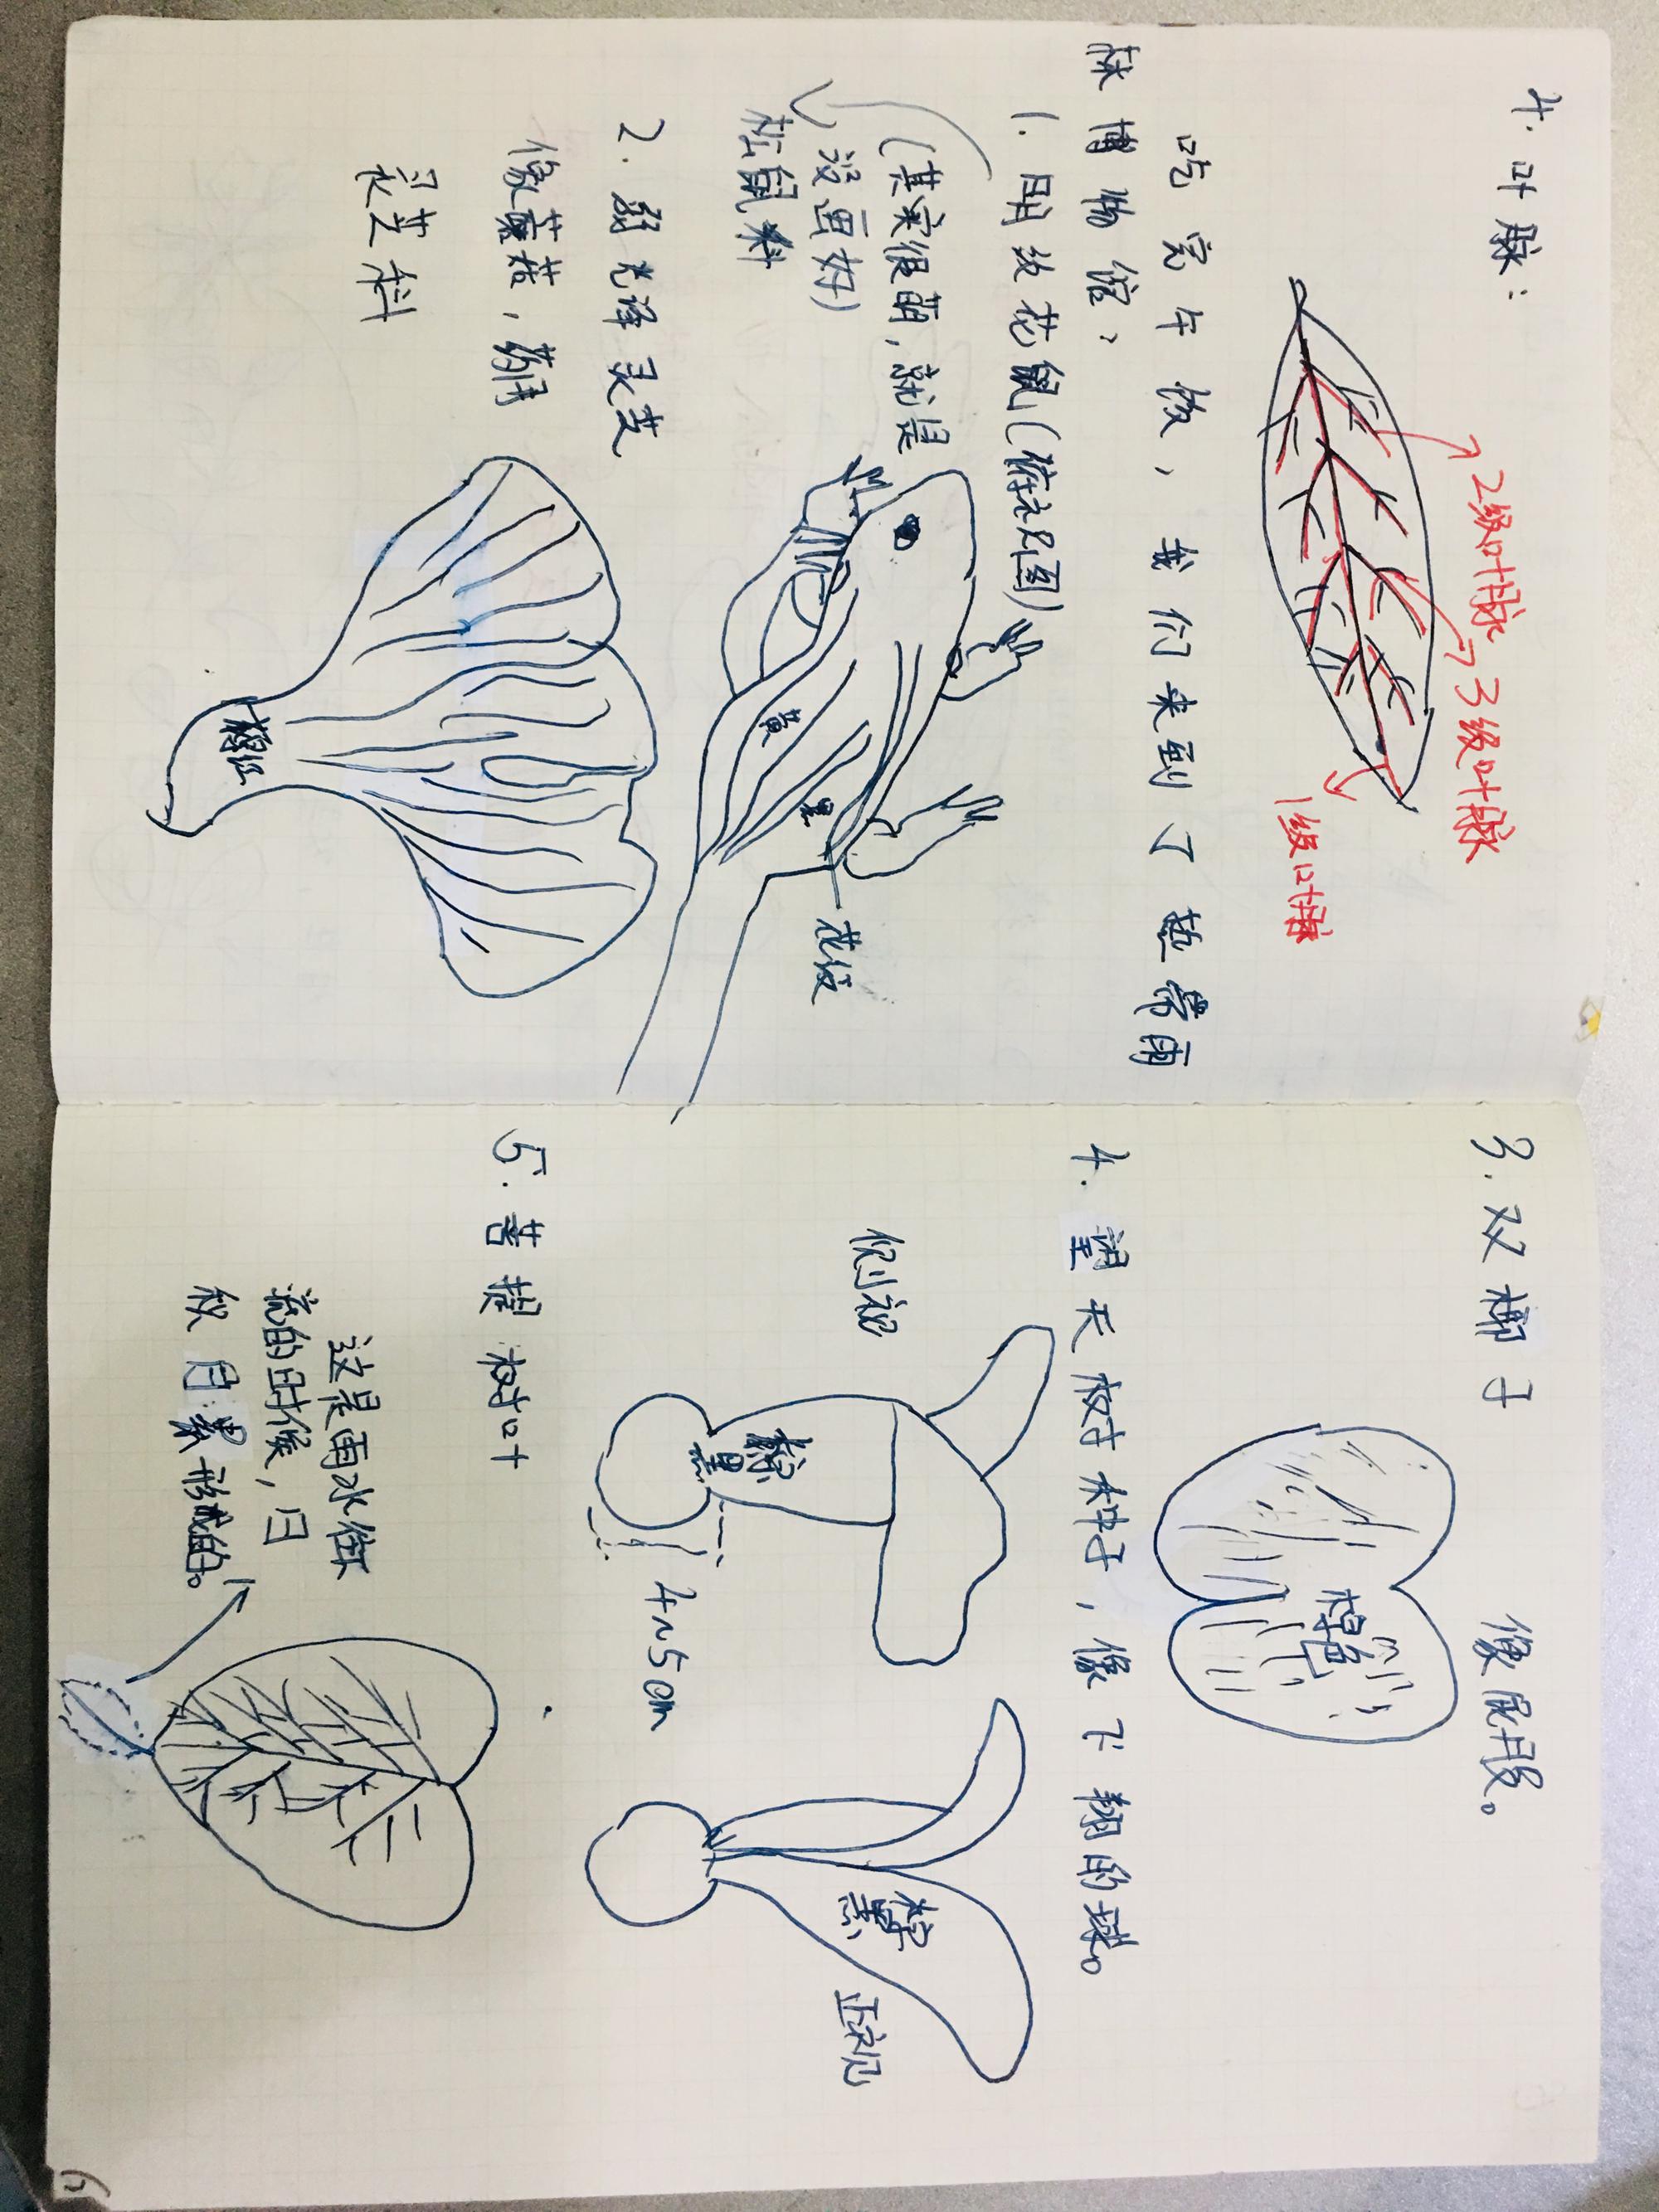 4. 叶脉：
2级叶脉
3级叶脉
1级叶脉
吃完午饭，我们来到了热带雨
林博物馆，
1. 明纹花鼠(俯视图)
(其实很萌，就是
没画好)
松鼠科
黄
黑
花纹
2. 弱光泽灵芝
像蘑菇，药用
灵芝科
棕红
3. 双椰子
像屁股。
棕色
4. 望天树种子，像飞翔的球。
侧视
棕
黑
4~5cm
正视
5. 菩提树叶
这是雨水衝
流的时候，日
积月累形成的。
6